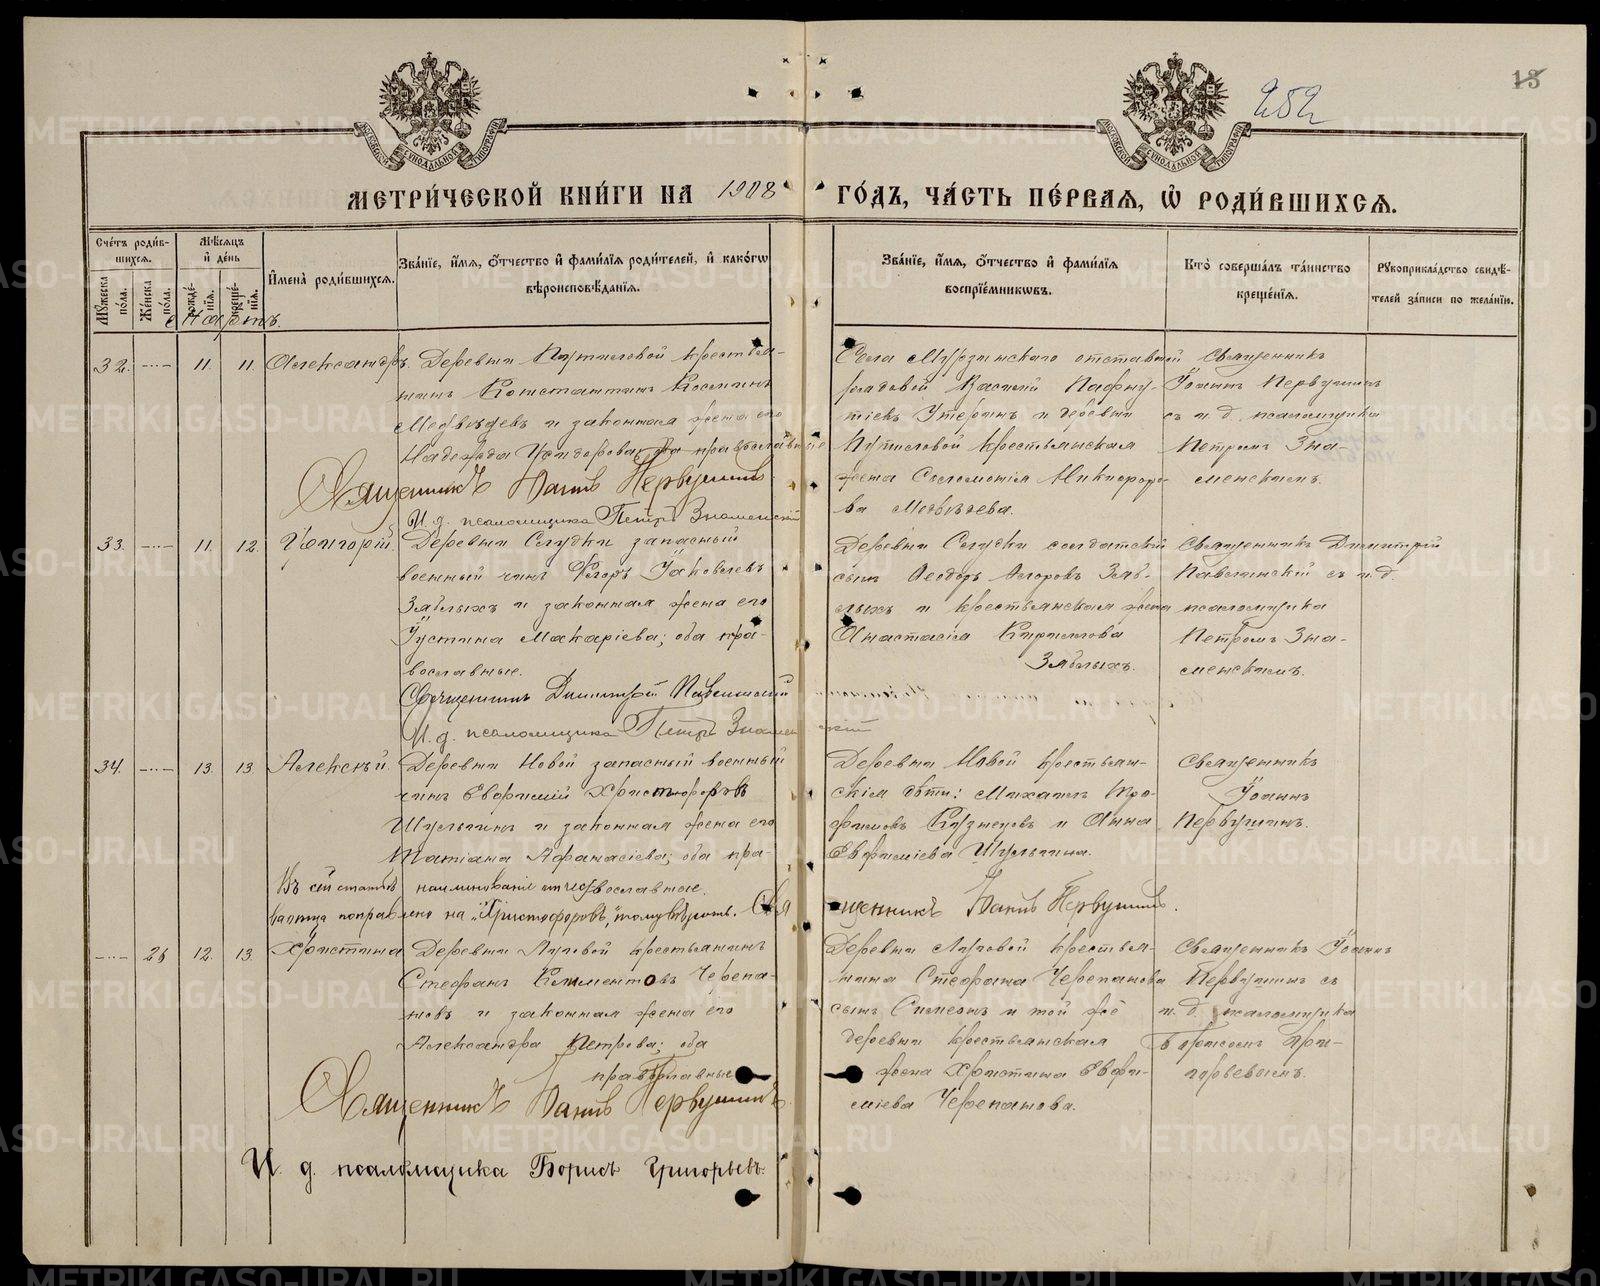 13
252
МЕТРИ́ЧЕСКОЙ КНИ́ГИ НА 1908 ГО́ДЪ, ЧА́СТЬ ПЕ́РВАЯ, Ѡ҆ РОДИ́ВШИХСЯ.
Сче́тъ роди́в-
шихся.
Мꙋ́жеска по́ла.
Же́нска по́ла.
Мѣ́сяцъ
и҆ де́нь
рожде́-
нїя.
креще́-
нїя.
И҆мена̀ роди́вшихся.
Зва́нїе, и҆́мя, ѻ҆́тчество и҆ фами́лїя роди́телей, и҆ како́гѡ
вѣроисповѣ́данїя.
Зва́нїе, и҆́мя, ѻ҆́тчество и҆ фами́лїя
воспрїе́мникѡвъ.
Кто̀ соверша́лъ та́инство
креще́нїя.
Рꙋкоприкла́дство свидѣ́-
телей за́писи по жела́нїю.
Мартъ.
32. 11. 11. Александръ.
Деревни Путиловой крестья-
нинъ Константинъ Косминъ
Медвѣдевъ и законная жена его
Надежда Исидорова; оба православные
Священникъ Іоаннъ Первушинъ
И. д. псаломщика Петръ Знаменскій
Села Мурзинскаго отставной
рядовой Василій Пафну-
тіевъ и деревни
Путиловой крестьянская
жена Соломонія Никифоро-
ва Медвѣдева.
Священникъ
Іоаннъ Первушинъ
съ и. д. псаломщика
Петромъ Зна-
менскимъ.
33. 11. 12. Григорій.
Деревни Слудки запасный
военный чинъ Ѳеодоръ Іаковлевъ
Зяблыхъ и законная жена его
Іустина Макаріева; оба пра-
вославные.
Священникъ Димитрій Павлинскій
И. д. псаломщика Петръ Знаменскій
Деревни Слудки солдатскій
сынъ Ѳеодоръ Зяб-
лыхъ и крестьянская жена
Анастасія Кириллова
Зяблыхъ.
Священникъ Димитрій
Павлинскій съ и. д.
псаломщика
Петромъ Зна-
менскимъ.
34. 13. 13. Алексѣй.
Деревни Новой запасный военный
чинъ Евфимій Христофоровъ
Шульгинъ и законная жена его
Татіана Афанасіева; оба пра-
вославные.
Деревни Новой крестьян-
скія дѣти: Михаилъ Тро-
фимовъ Кузнецовъ и Анна
Евфиміева Шульгина.
Священникъ
Іоаннъ
Первушинъ.
Въ сей статьѣ наименованіе
поправлено на „Христофоровъ",
Священникъ Іоаннъ Первушинъ.
26 12. 13. Христина
Деревни Луговой крестьянинъ
Стефанъ Климентовъ Черепа-
новъ и законная жена его
Александра Петрова; оба
православные
Священникъ Іоаннъ Первушинъ
И. д. псаломщика Борисъ Григорьевъ.
Деревни Луговой крестья-
нина Стефана Черепанова
сынъ Симеонъ и той же
деревни крестьянская
жена Христина Евфи-
міева Черепанова.
Священникъ Іоаннъ
Первушинъ съ
и. д. псаломщика
Борисомъ Гри-
горьевымъ.
METRIKI.GASO-URAL.RU